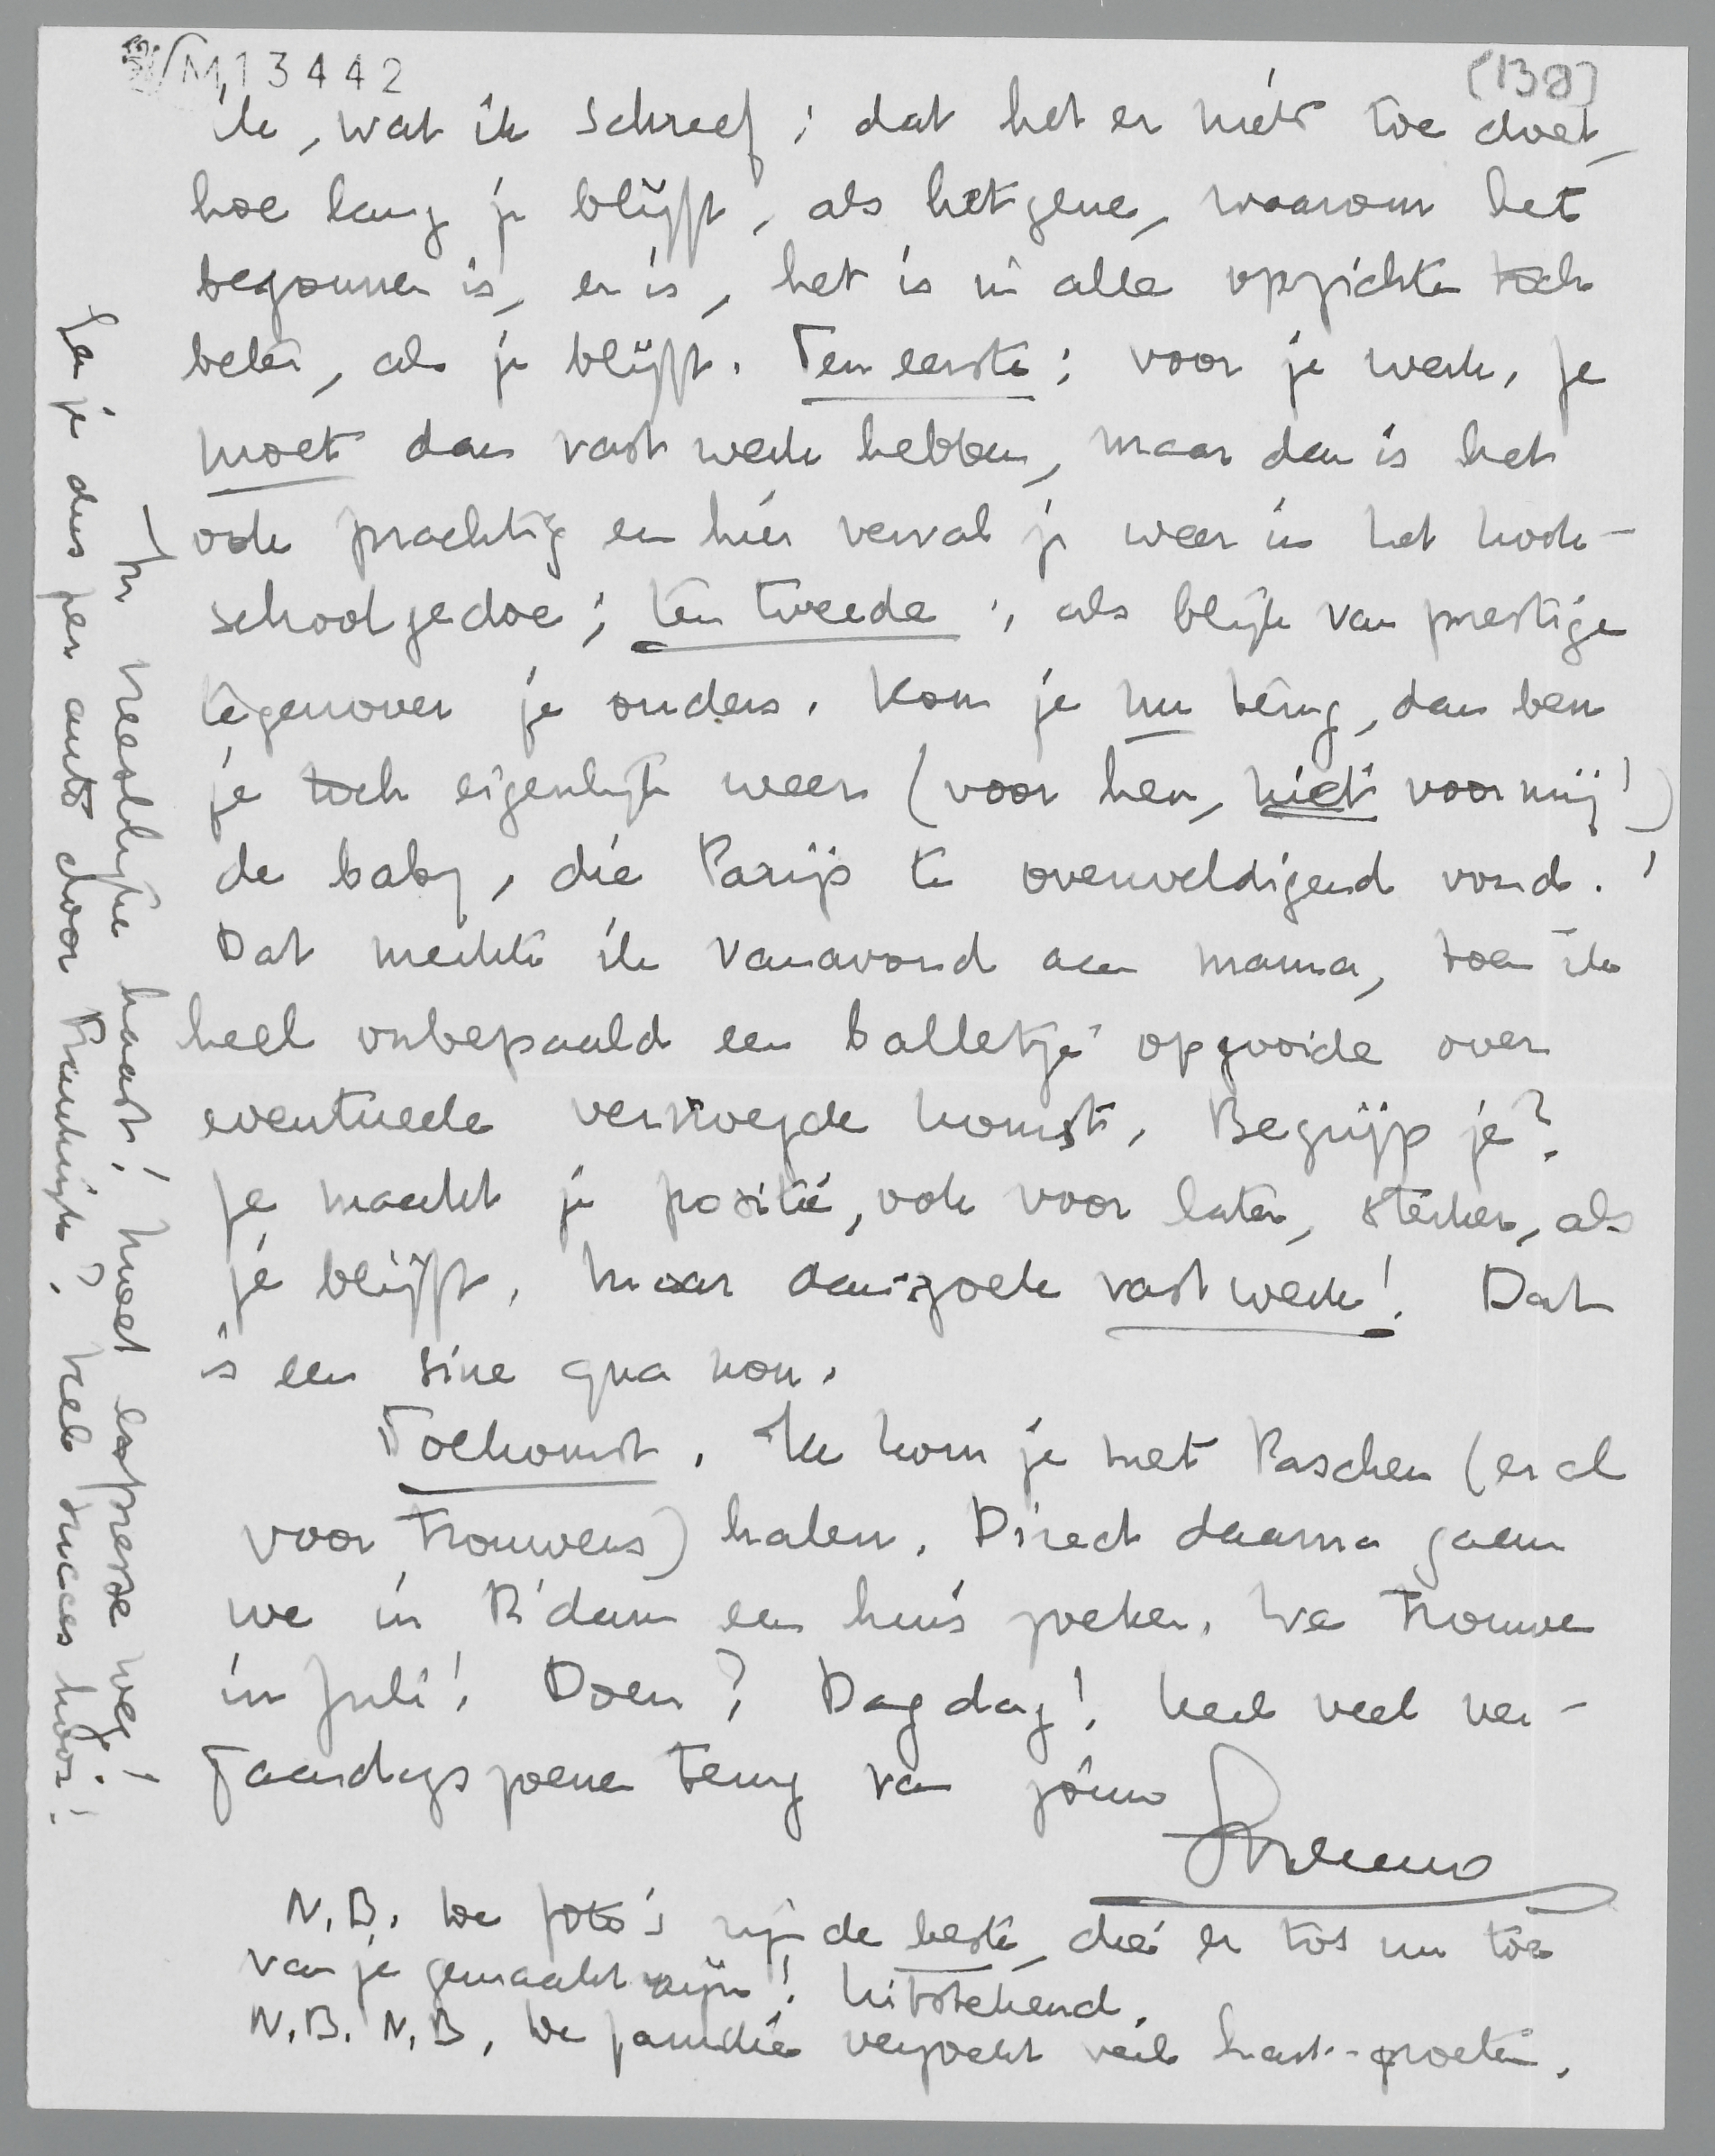 M 13442
[138]
ik, wat ik schreef: dat het er niets toe doet,
hoe lang je blijft, als hetgene, waarom het
begonnen is, er is, het is in alle opzichten toch
beter, als je blijft. Ten eerste: voor je werk. Je
moet dan vast werk hebben, maar dan is het
ook prachtig en hier verval je weer in het kook-
schoolgedoe; ten tweede: als blijk van prestige
tegenover je ouders. Kom je nu terug, dan ben
je toch eigenlijk weer (voor hen, niet voor mij!)
de baby, die Parijs te overweldigend vond.
Dat merkte ik vanavond aan mama, toen ik
heel onbepaald een balletje opgooide over
eventueele vervroegde komst. Begrijp je?
Je maakt je positie, ook voor later, sterker, als
je blijft. Maar dan: zoek vast werk! Dat
is een sine qua non.
Toekomst. Ik kom je met Paschen (er al
voor trouwens) halen. Direct daarna gaan
we in R'dam een huis zoeken. We trouwen
in Juli! Doen? Dag dag! Heel veel ver-
jaardagszoenen terug van jouw
N.B. De foto's zijn de beste, die er tot nu toe
van je gemaakt zijn! Uitstekend.
N.B. N.B. De familie verzoekt veel hart. groeten.
In vreeslijke haast! Moet expresse weg!
Ga je dus per auto door Frankrijk? Veel succes hoor!